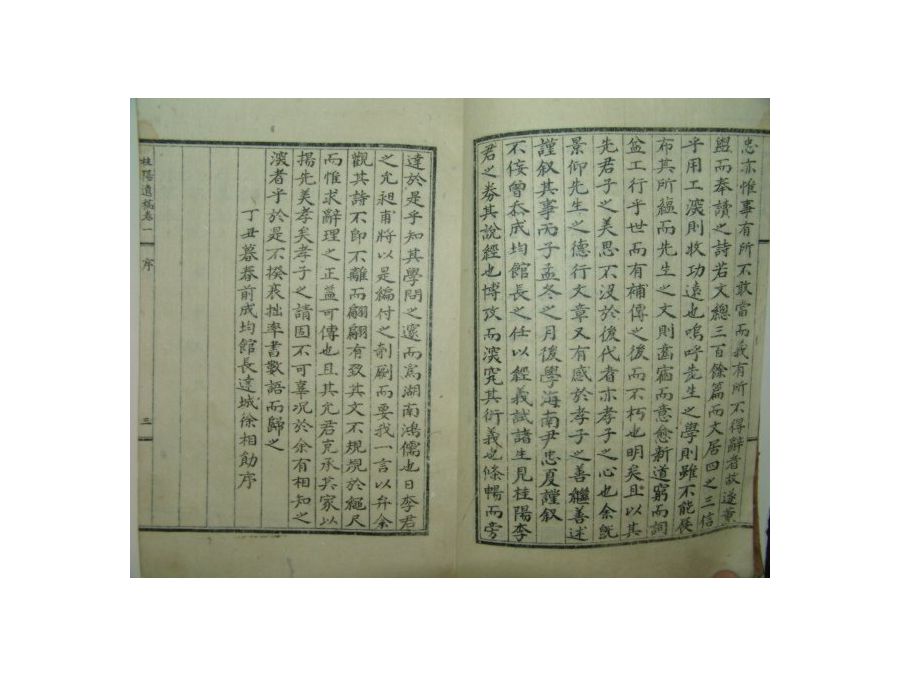 忠亦惟事有所不敢當而義有所不得辭者故遂薰
盥而奉讀之詩若文總三百餘篇而文居四之三信
乎用工深則收功遠也嗚呼先生之學則雖不能俟
布其所蘊而先生之文則齒宿而意愈新道窮而詞
益工行乎世而有補傳之後而不朽也明矣且以其
先君子之美思不沒於後代者亦孝子之心也余旣
景仰先生之德行文章又有感於孝子之善繼善述
謹叙其事而子孟冬之月後學海南尹忠夏謹叙
不侫曾忝成均館長之任以經義試諸生見桂陽李
君之券其說經也博攷而深究其衍義也條暢而旁
達於是乎知其學問之邃而爲湖南鴻儒也日李君
之允昶甫將以是編付之剞劂而要我一言以弁余
觀其詩不卽不離而翩翩有致其文不規規於繩尺
而惟求辭理之正益可傳也且其允君克承其家以
揚先美孝矣孝子之請固不可辜況於余有相知之
深者乎於是不揆衰拙率書數語而歸之
丁丑暮春前成均館長達城徐相勛序
桂陽遺稿卷一
序
三